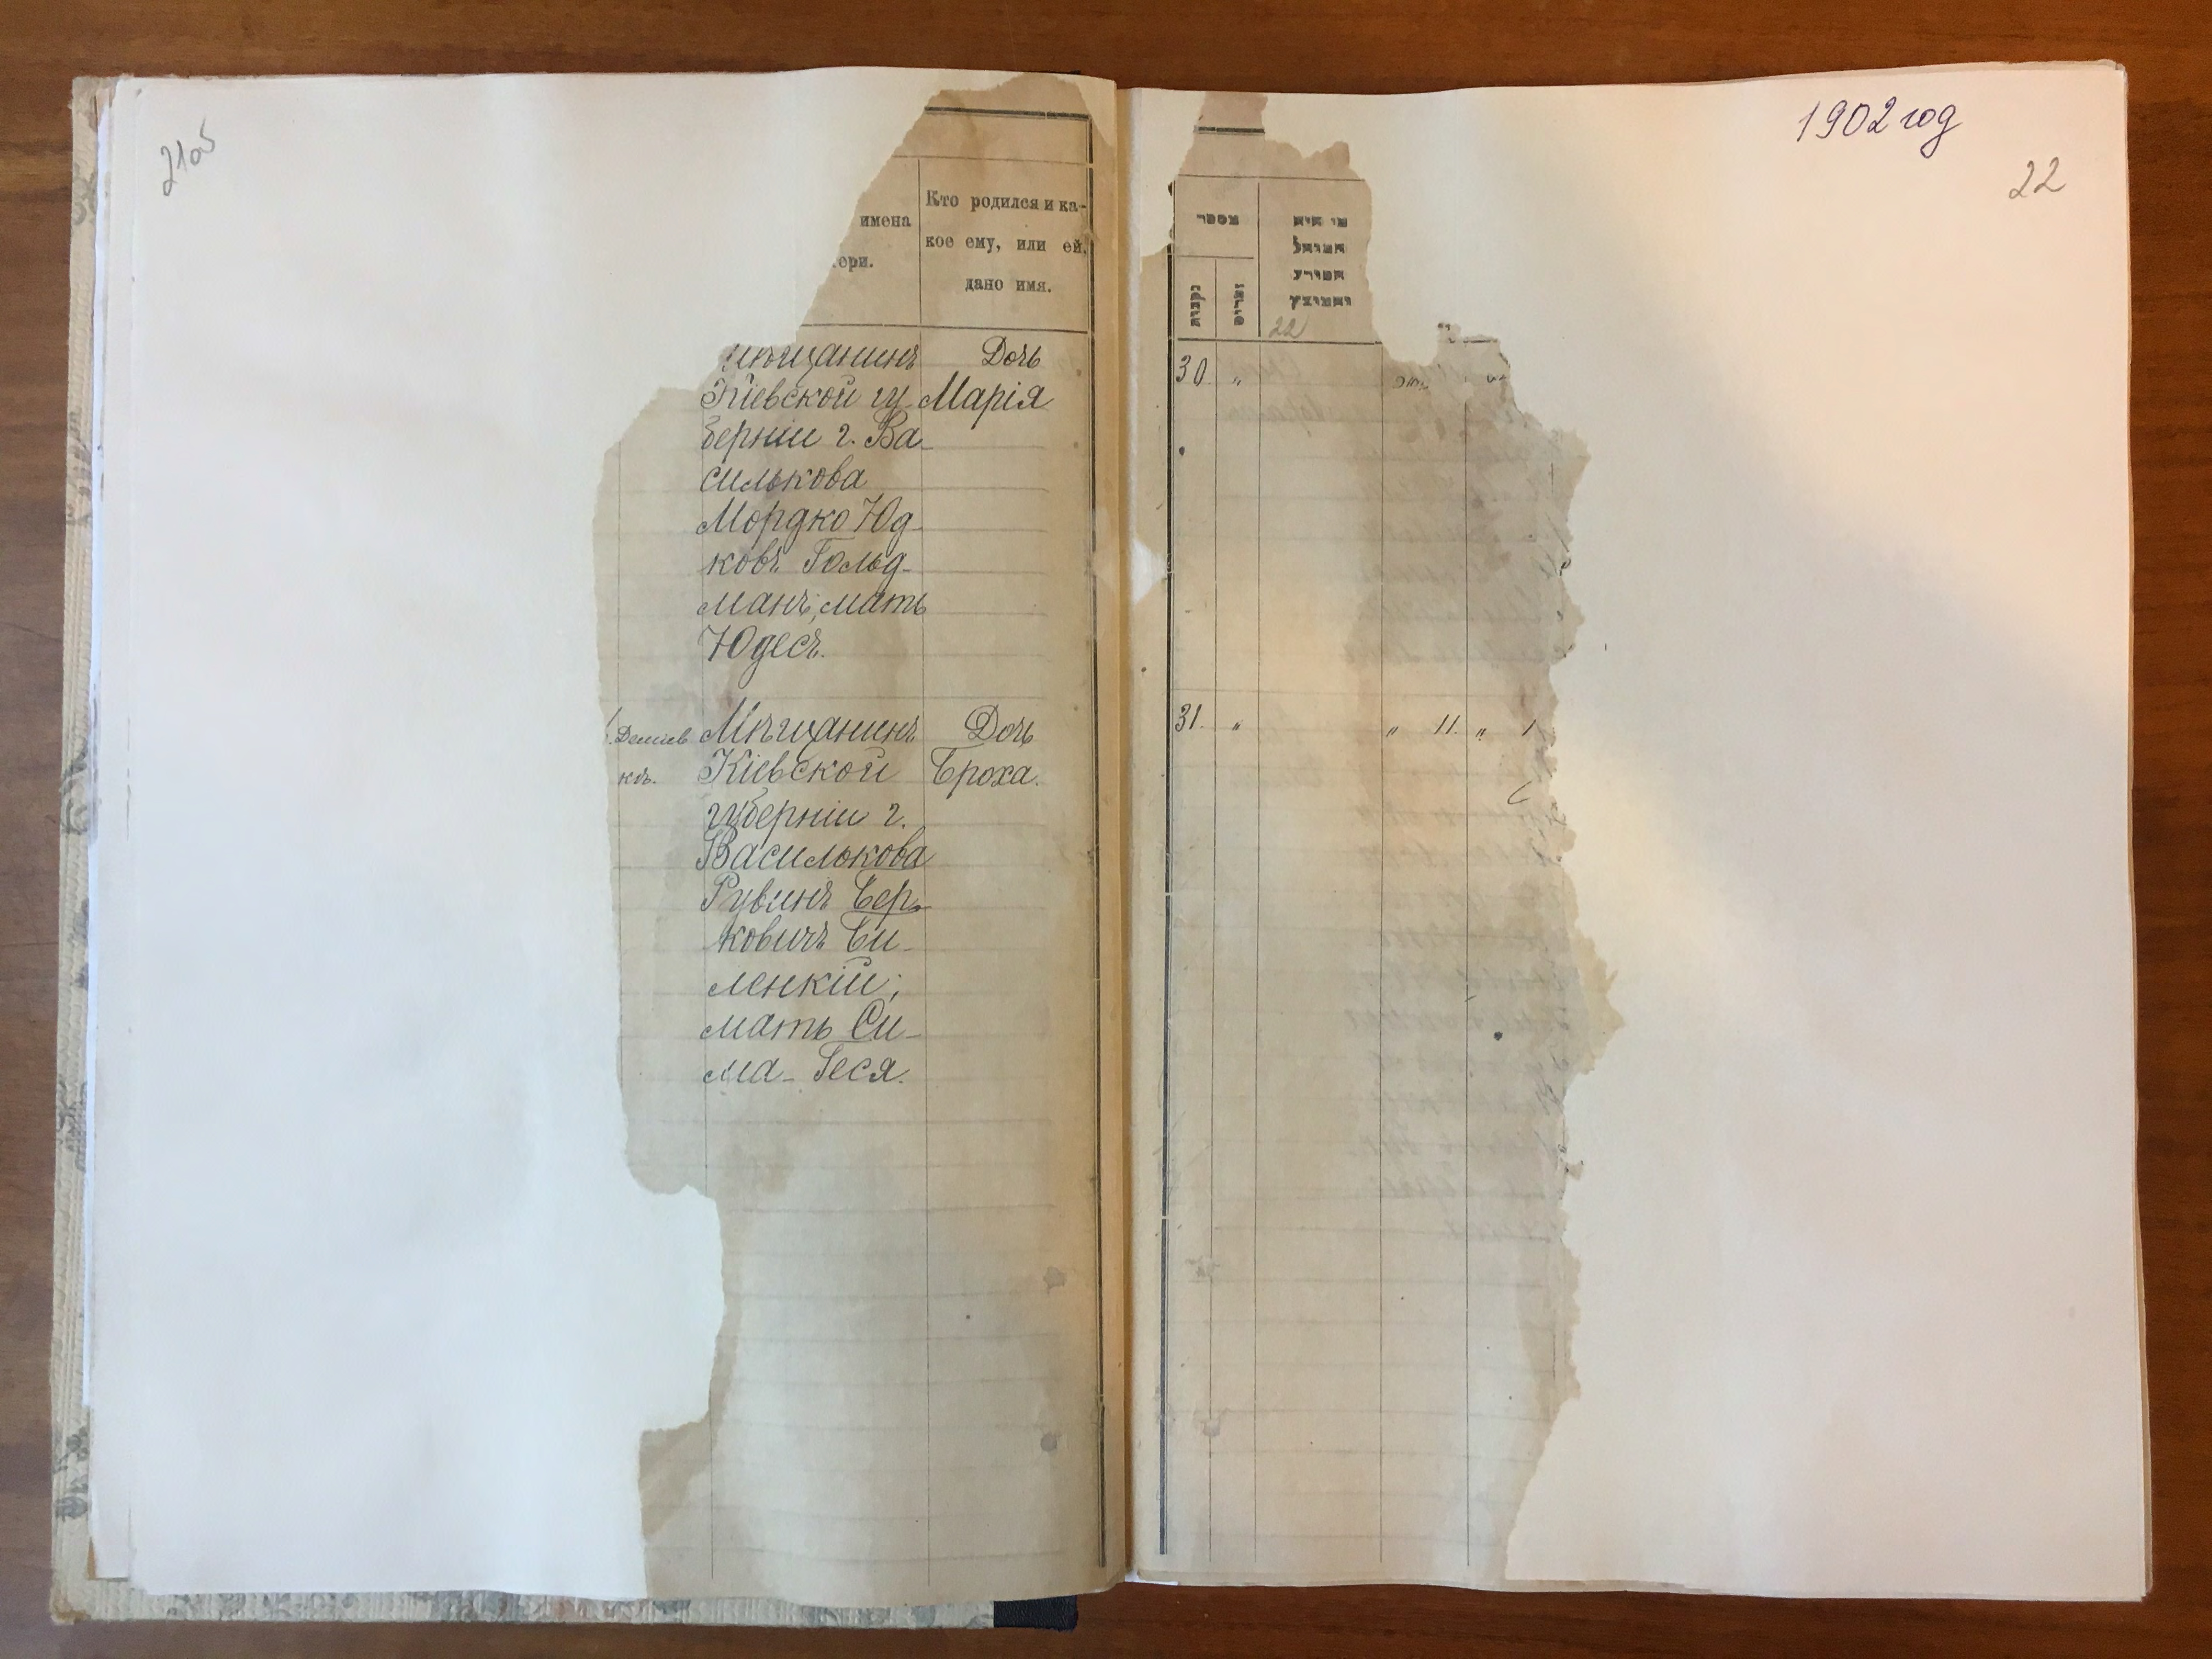 21об
имена
ери.
Кто родился и ка-
кое ему, или ей,
дано имя.
мѣщанинъ
Кіевской гу
берніи г. Ва-
силькова
Мордко Юд-
ковъ Гольд-
манъ; мать
Юдесъ.
Дочь
Марія
Демиев
кѣ.
Мѣщанинъ
Кіевской
губерніи г.
Василькова
Рувинъ Бер-
ковичъ Би-
ленкій;
мать Си-
ма-Геся.
Дочь
Броха.
1902 год
22
מספר
נקבות
זכרים
מי היה
המוהל
הפורע
והמוצץ
22
30. "
31. " " 11. " 1